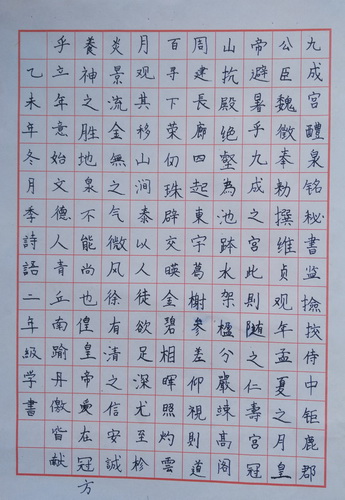 九成宫醴泉铭秘書监撿挍侍中钜鹿郡
公臣魏徵奉勅撰维贞观年孟夏之月皇
帝避暑乎九成之宫此則隨之仁壽宫冠
山抗殿絶壑為池跨水架楹分巖竦高阁
周建長廊四起東宇葛榭參差仰視則道
百寻下荣仞珠辟交暎金碧相暉照灼雲
月观其移山涧泰以人徒欲足深尤至於
炎景流金無之气微风徐有清之信安誠
養神之胜地泉不能尚也徨皇帝爰在冠方
乎立年意始文德人青丘南踰丹徼皆献
乙未年冬月季詩語二年級学書